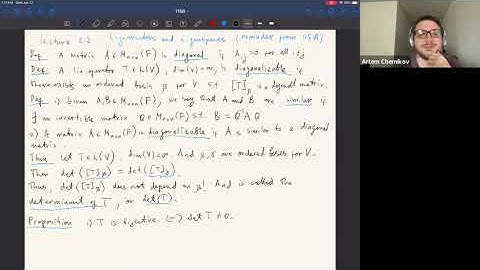 Lecture 2.2 Eigenvectors and eigenspaces (reminder from 115A)
Def A matrix A ∈ Mn×n(F) is diagonal if Aij = 0 for all i≠j
Def A lin operator T∈L(V), dim(V)<∞, is diagonalizable if
there exists an ordered basis β for V s.t. [T]β is a diagonal matrix.
Def 1) Given A,B∈Mn×n(F), we say that A and B are similar if
∃ an invertible matrix Q∈Mn×n(F) s.t. B = Q⁻¹AQ
2) A matrix A∈Mn×n(F) is diagonalizable if A is similar to a diagonal
matrix.
Thm Let T∈L(V), dim(V)<∞. And β,γ are ordered bases for V.
Then det([T]β) = det([T]γ).
Thus, det([T]β) does not depend on β! And is called the
determinant of T, or det(T).
Proposition 1) T is bijective ⟺ det T ≠ 0.
Artem Chernikov